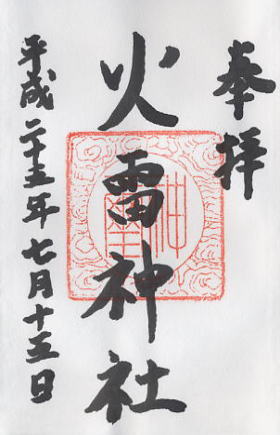 奉拝
火雷神社
平成二十五年七月十五日